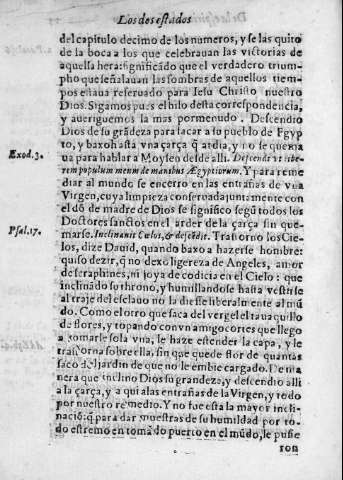 Los dos estados
del capitulo decimo de los numeros, y se las quito
de la boca a los que celebrauan las victorias de
aquella hera: significãdo que el verdadero trium-
pho que señalauan las sombras de aquellos tiem-
pos estaua reseruado para Iesu Christo nuestro
Dios. Sigamos pues el hilo desta correspondencia,
y aueriguemos la mas pormenudo. Descendio
Dios de su grãdeza para sacar a su pueblo de Egyp
to, y baxo hasta vna çarça q̃ ardia, y no se quema
Exod. 3.
ua para hablar a Moysen desde alli. Descendi vt libe-
rem populum meum de manibus Ægyptiorum. Y para reme
diar al mundo se encerro en las entrañas de vna
Virgen, cuya limpieza conseruada juntamente con
el dõ de madre de Dios se significo segũ todos los
Doctores sanctos en el arder de la çarça sin que
Psal. 17.
marse. Inclinauit Cœlos, & descẽdit. Trastorno los Cie-
los, dize Dauid, quando baxo a hazerse hombre:
quiso dezir, q̃ no dexo ligereza de Angeles, amor
de seraphines, ni joya de codicia en el Cielo: que
inclinãdo su throno, y humillandose hasta vestirse
al traje del esclauo no la diesse liberalmente al mũ
do. Como el otro que saca del vergel el tauaquillo
de flores, y topando con vn amigo cortes que llego
a tomarle sola vna, le haze estender la capa, y le
trastorna sobre ella, sin que quede flor de quantas
saco del jardin de que no le embie cargado. De ma
nera que inclino Dios su grandeza, y descendio alli
a la çarça, y a qui a las entrañas de la Virgen, y todo
por nuestro remedio. Y no fue esta la mayor incli-
nació: q̃ para dar muestras de su humildad por to-
do estremo en tomãdo puerto en el mũdo, le pusie
ron